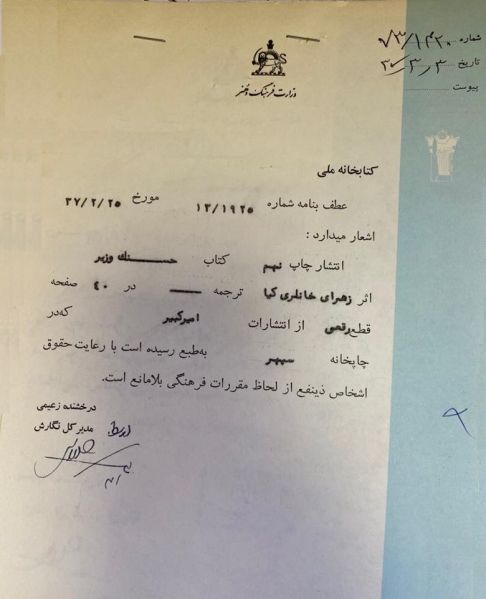 شماره ۷۳/۱۴۲۰
تاریخ ۳۷/۳/۳
پیوست
وزارت فرهنگ و هنر
کتابخانه ملی
عطف بنامه شماره ۱۳/۱۹۲۵ مورخ ۳۷/۲/۲۵
اشعار میدارد :
انتشار چاپ نهم کتاب حسنك وزیر
اثر زهرای خانلری کیا ترجمه ــــ در ۴۰ صفحه
قطع رقعی از انتشارات امیرکبیر که در
چاپخانه سپهر به‌طبع رسیده است با رعایت حقوق
اشخاص ذینفع از لحاظ مقررات فرهنگی بلامانع است.
درخشنده زعیمی
مدیر کل نگارش